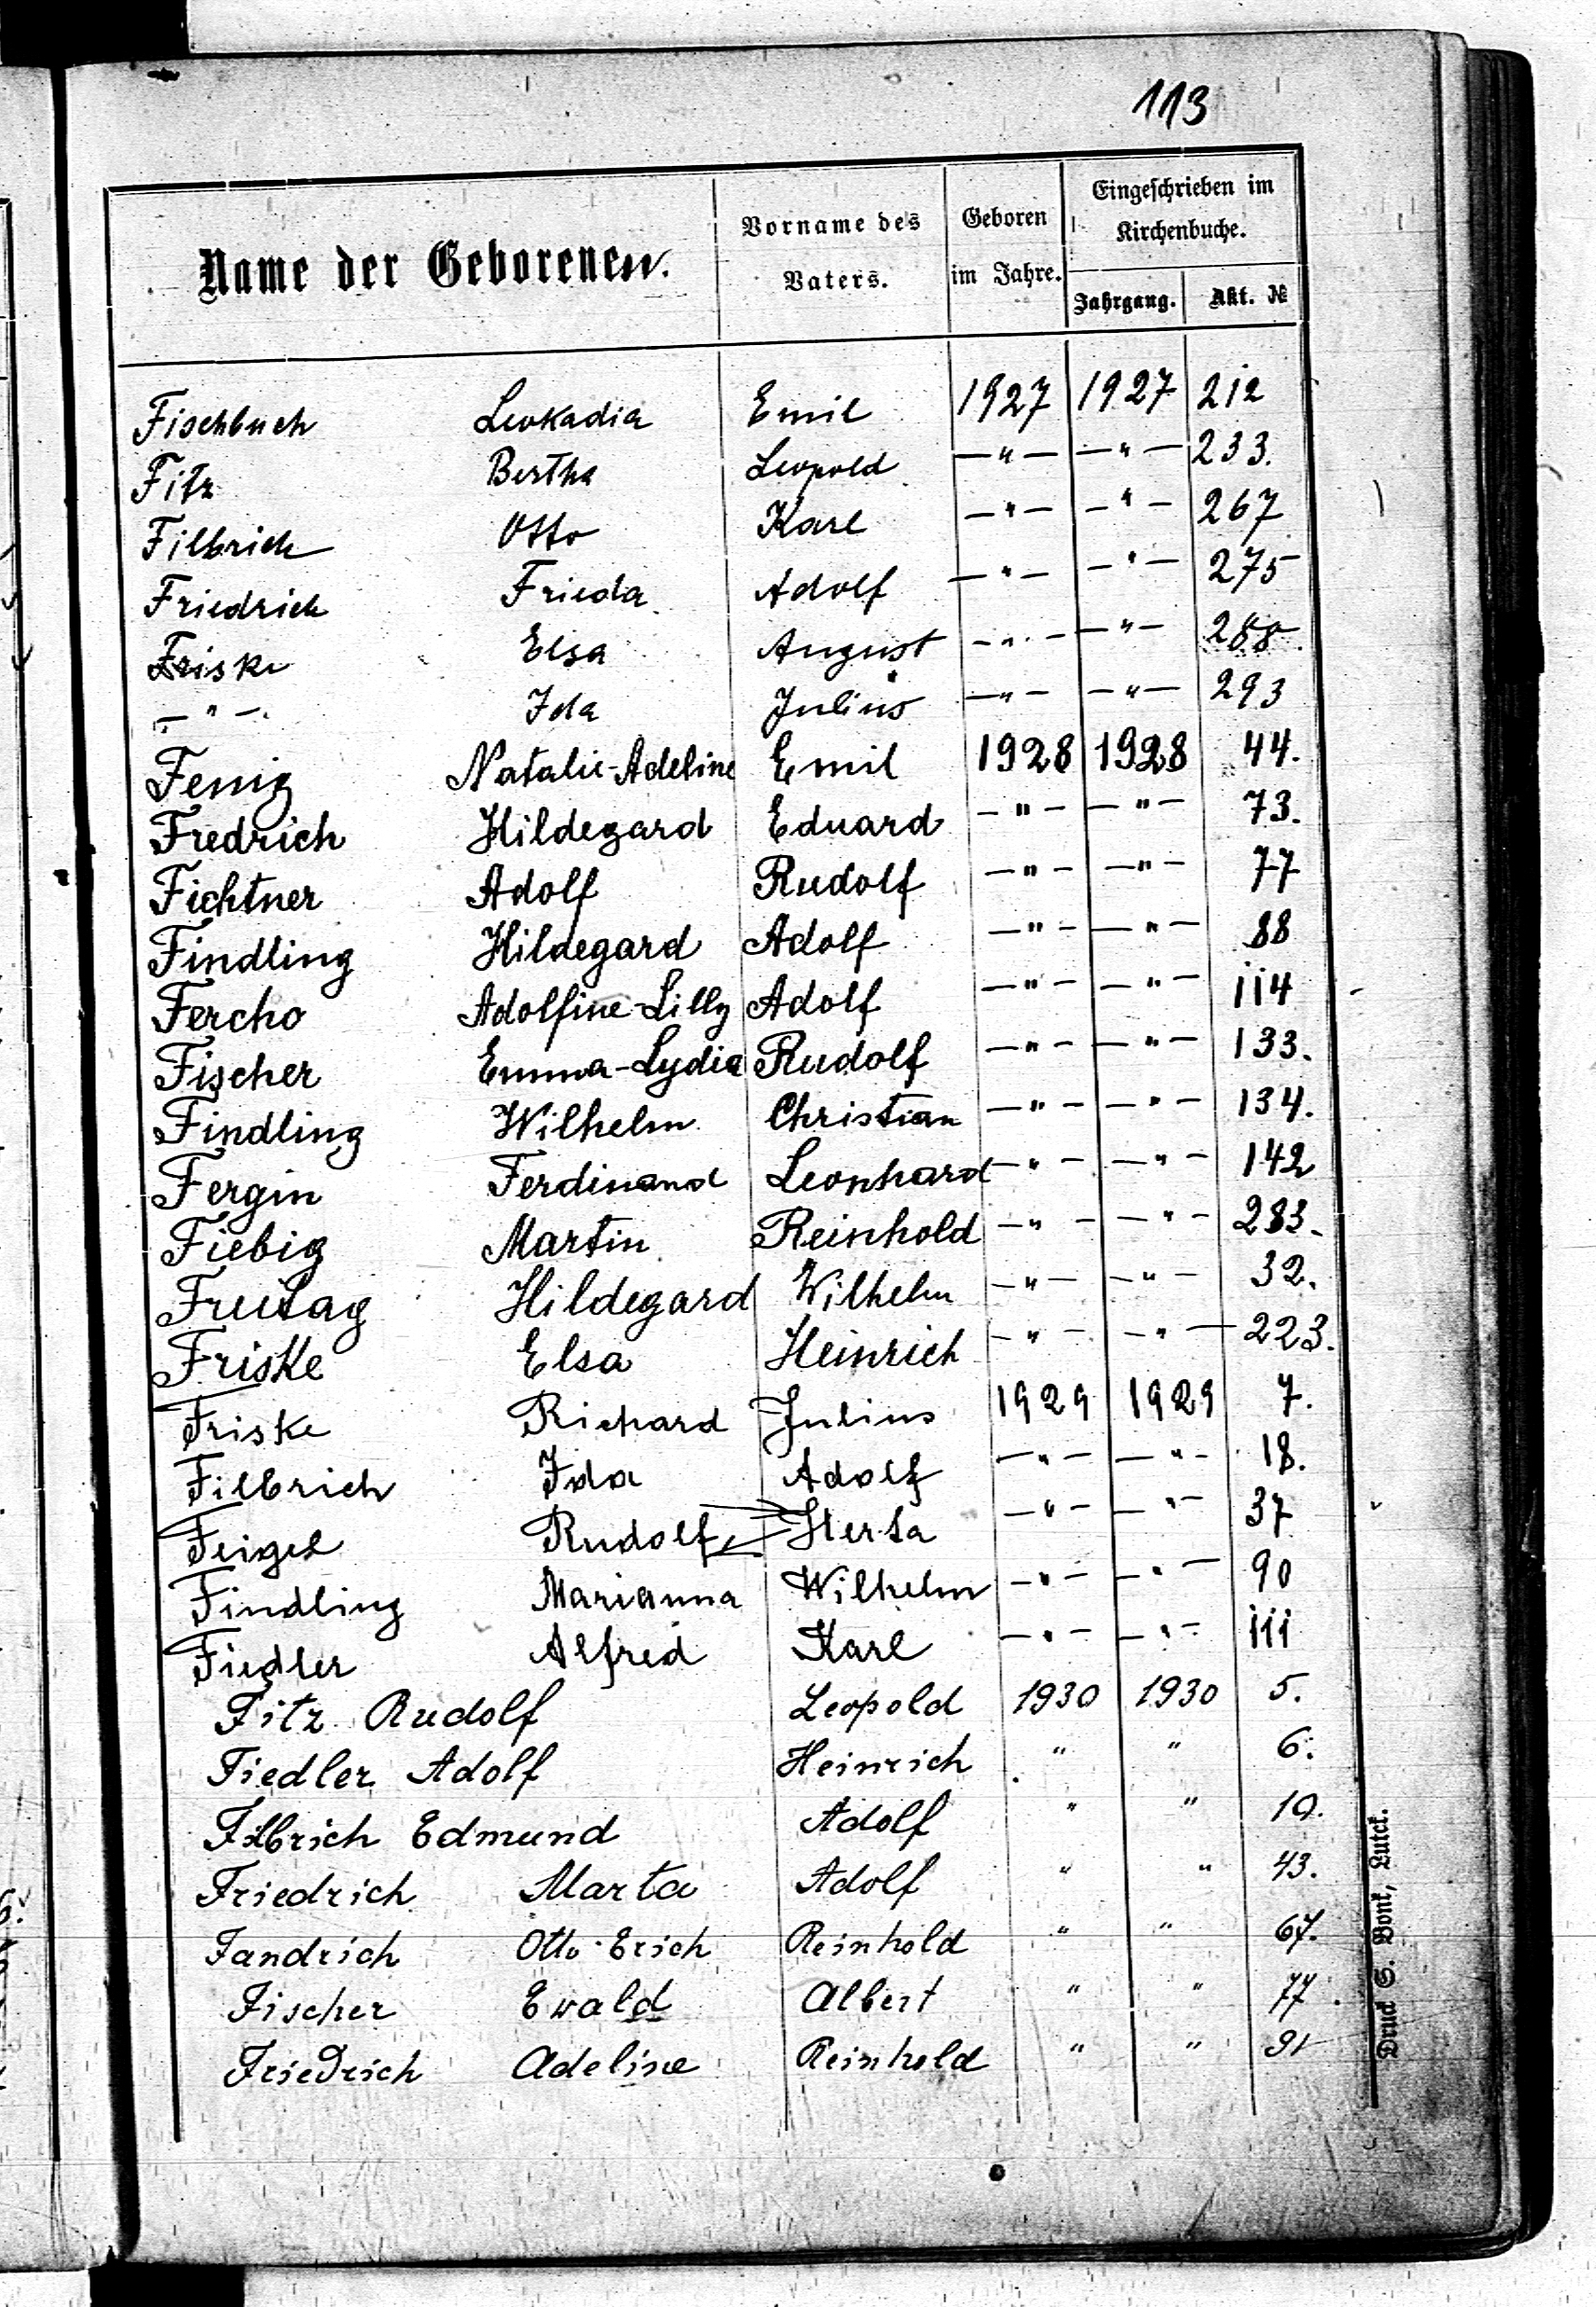 113
Name der Geborenen.
Vorname des Vaters.
Geboren im Jahre.
Eingeschrieben im Kirchenbuche.
Jahrgang.
Akt. №
Fischbuch Leokadia Emil 1927 1927 212
Fitz Bertha Leopold —"— —"— 233.
Filbrich Otto Karl —"— —"— 267
Friedrich Frieda Adolf —"— —"— 275
Friske Elsa August —"— —"— 288
—"— Ida Julius —"— —"— 293
Fenig Natalie-Adeline Emil 1928 1928 44.
Fredrich Hildegard Eduard —"— —"— 73.
Fichtner Adolf Rudolf —"— —"— 77
Findling Hildegard Adolf —"— —"— 88
Fercho Adolfine-Lilly Adolf —"— —"— 114
Fischer Emma-Lydia Rudolf —"— —"— 133.
Findling Wilhelm Christian —"— —"— 134.
Fergin Ferdinand Leonhard —"— —"— 142
Fiebig Martin Reinhold —"— —"— 283.
Freitag Hildegard Wilhelm —"— —"— 32.
Friske Elsa Heinrich —"— —"— 223.
Friske Richard Julius 1929 1929 7.
Filbrich Ida Adolf —"— —"— 18.
Feigel Rudolf Herta —"— —"— 37
Findling Marianna Wilhelm —"— —"— 90
Fiedler Alfred Karl —"— —"— 111
Fitz Rudolf Leopold 1930 1930 5.
Fiedler Adolf Heinrich " " 6.
Filbrich Edmund Adolf " " 19.
Friedrich Marta Adolf " " 43.
Fandrich Otto-Erich Reinhold " " 67.
Fischer Ewald Albert " " 77.
Friedrich Adeline Reinhold " " 91
Druck S. Bonk, Lutck.